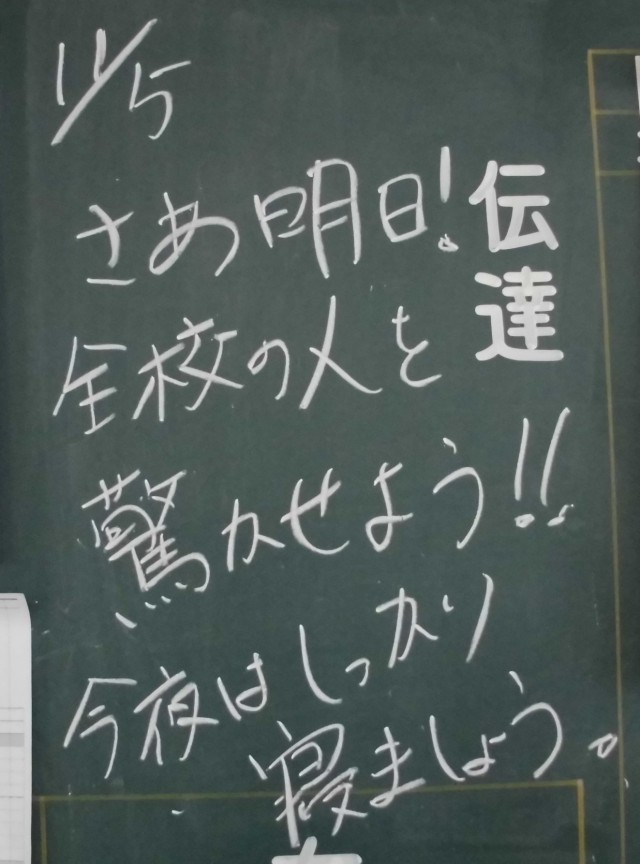 伝達
11/5
さあ明日!
全校の人を
驚かせよう!!
今夜はしっかり
寝ましょう。